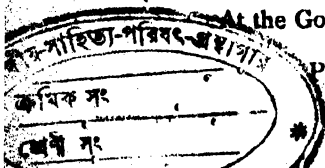 At the Go
সাহিত্য-পরিষৎ-গ্রন্থাগার
P
ক্রমিক সং
শ্রেণী সং